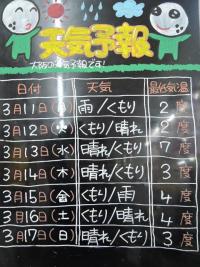 天気予報
大阪の天気予報です!
日付 天気 最低気温
3月11日(月) 雨/くもり 2度
3月12日(火) くもり/晴れ 2度
3月13日(水) 晴れ/くもり 7度
3月14日(木) 晴れ/くもり 3度
3月15日(金) くもり/雨 4度
3月16日(土) くもり/晴れ 4度
3月17日(日) 晴れ/くもり 3度